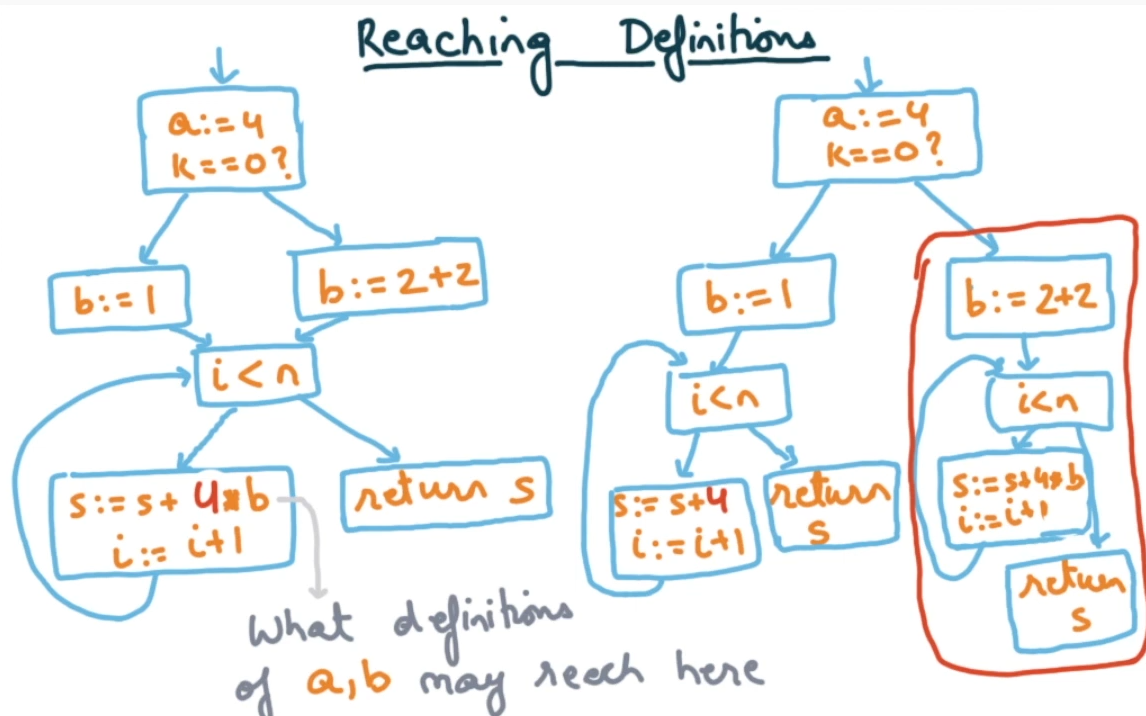 Reaching Definitions
a:=4
k==0?
b:=1
b:=2+2
i<n
s:=s+4*b
i:=i+1
return s
What definitions
of a,b may reech here
a:=4
k==0?
b:=1
i<n
s:=s+4
i:=i+1
return
s
b:=2+2
i<n
s:=s+4*b
i:=i+1
return
s